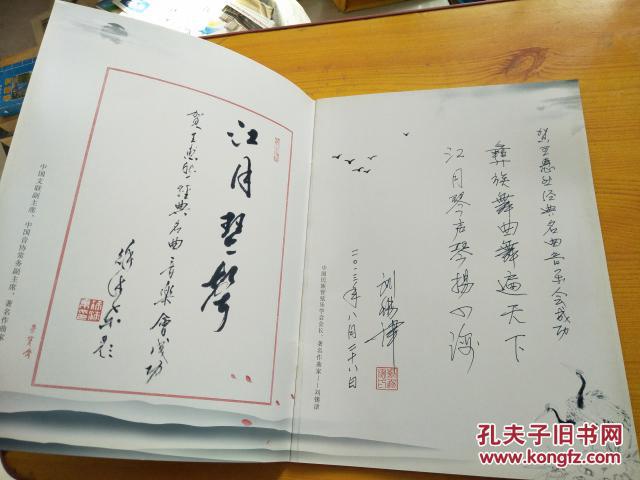 江月琴声
贺王惠然经典名曲音乐會成功
徐沛东题
中国文联副主席、中国音协常务副主席、著名作曲家
贺王惠然经典名曲音乐会成功
彝族舞曲舞遍天下
江月琴声琴扬四海
刘锡津
二〇一三年八月二十八日
中国民族管弦乐学会会长、著名作曲家——刘锡津
孔夫子旧书网